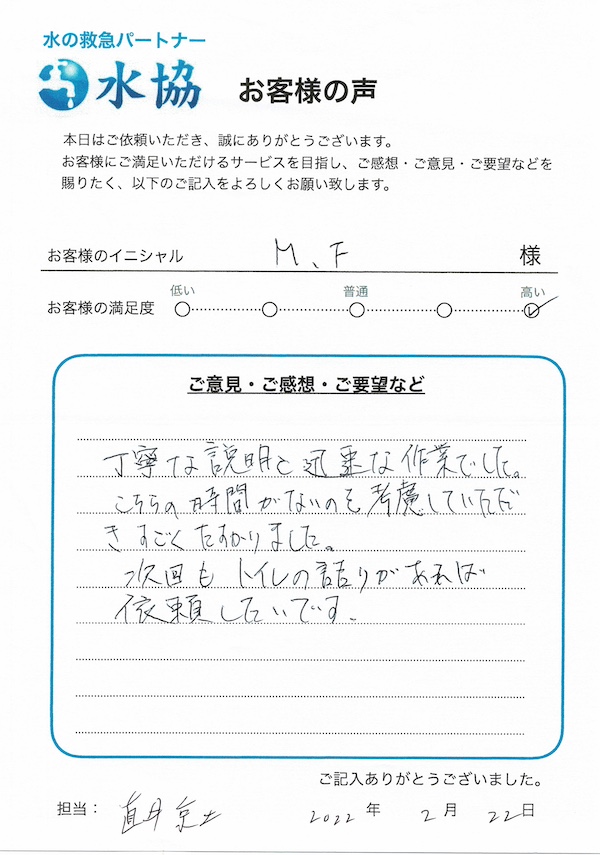 水の救急パートナー
水協
お客様の声
本日はご依頼いただき、誠にありがとうございます。
お客様にご満足いただけるサービスを目指し、ご感想・ご意見・ご要望などを
賜りたく、以下のご記入をよろしくお願い致します。
お客様のイニシャル M、F 様
低い 普通 高い
お客様の満足度
ご意見・ご感想・ご要望など
丁寧な説明と迅速な作業でした。
こちらの時間がないのも考慮していただ
きすごくたすかりました。
次回もトイレの詰りがあれば
依頼したいです。
ご記入ありがとうございました。
担当: 2022年 2月 22日